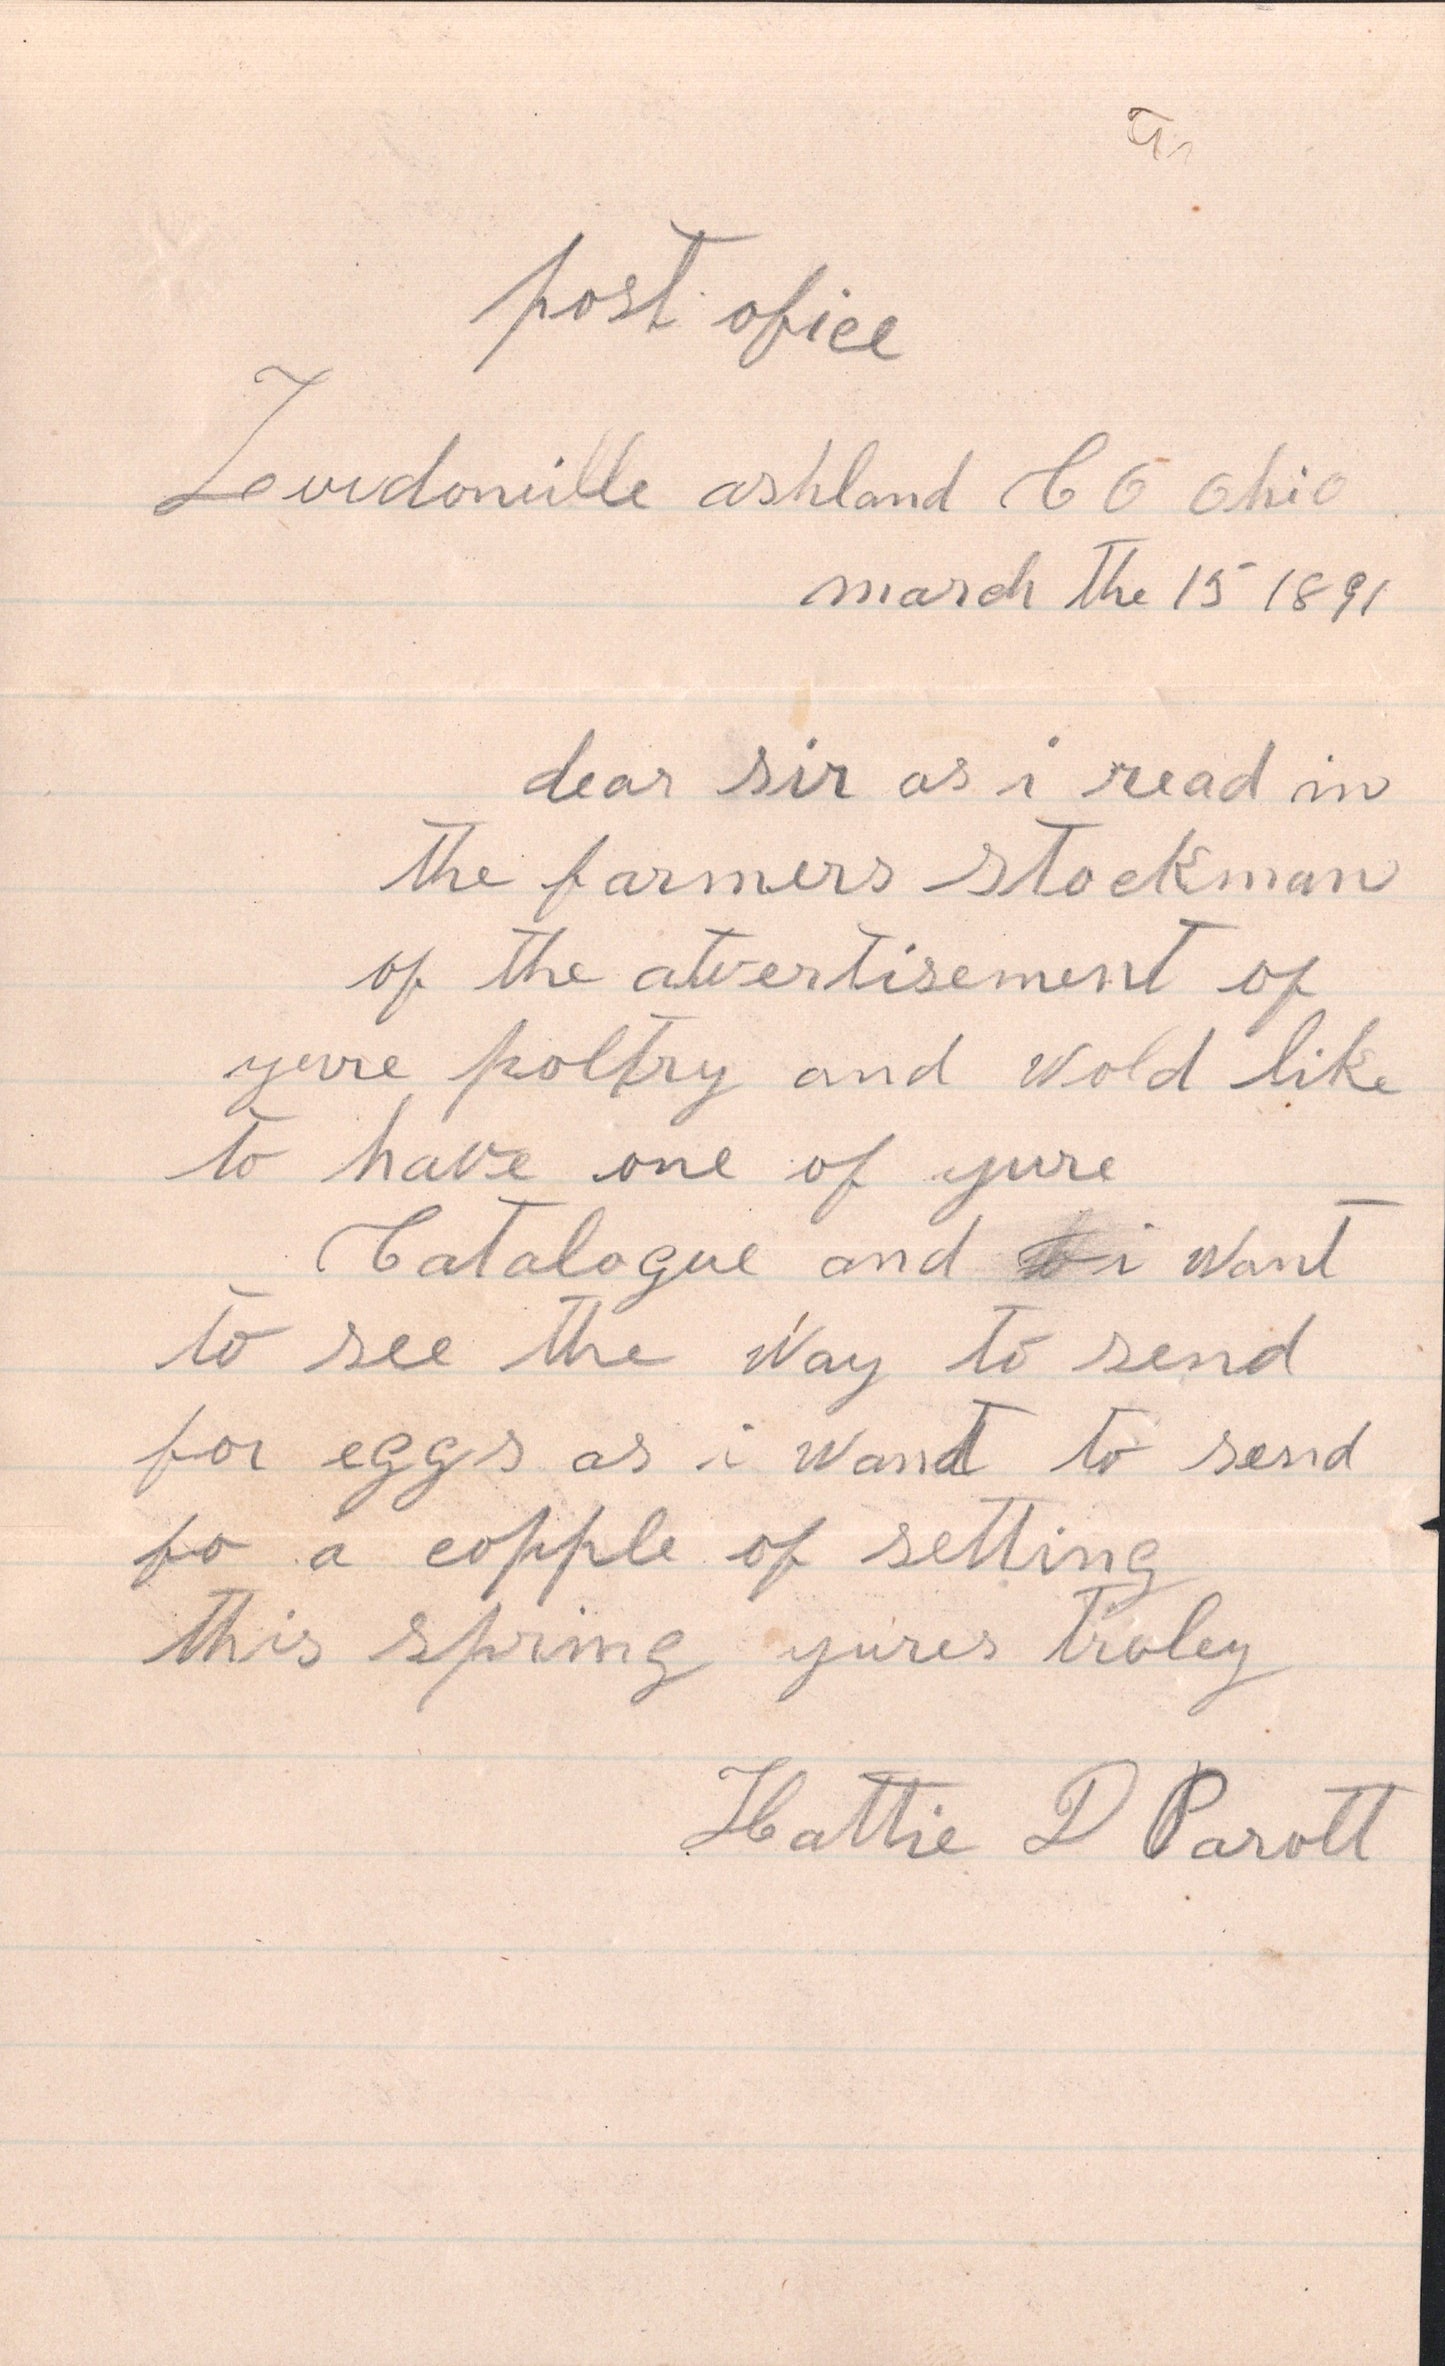 post ofice
Louidonville ashland CO Ohio
march the 15 1891
dear sir as i read in
the farmers stockman
of the atvertisement of
yure poltry and wold like
to have one of yure
Catalogue and i want
to see the way to send
for eggs as i want to send
fo a copple of setting
this spring yures troley
Hattie D Parott